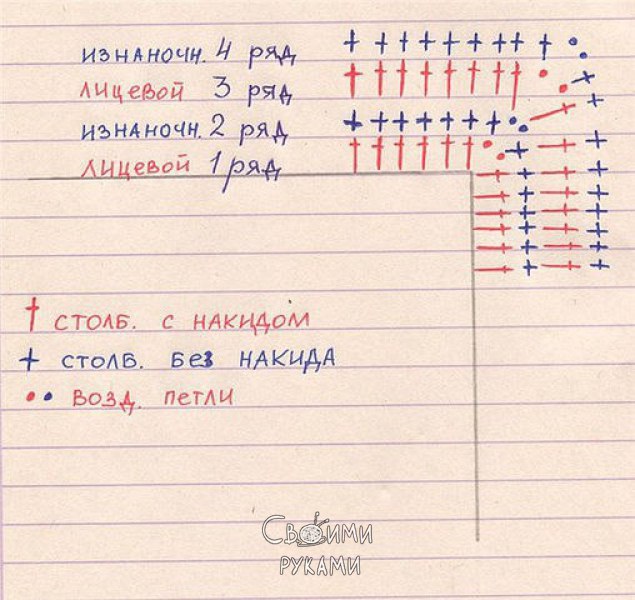 изнаночн. 4 ряд
лицевой 3 ряд
изнаночн. 2 ряд
лицевой 1 ряд
столб. с накидом
столб. без накида
возд. петли
Своими
руками